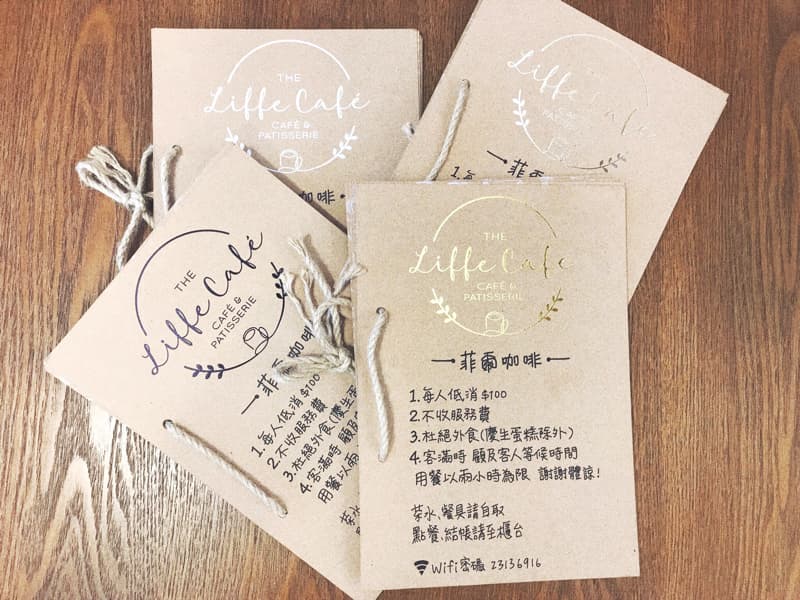 THE
Liffe Café
CAFÉ &
PATISSERIE
咖啡
Liffe Cafe
1.每
THE
Liffe Café
CAFÉ &
PATISSERIE
咖啡
1.每人低消$100
2.不收服務費
3.杜絕外食(慶生蛋糕
4.客滿時 顧及
用餐以兩
茶水、
點餐
THE
Liffe Café
CAFÉ &
PATISSERIE
菲爾咖啡
1.每人低消$100
2.不收服務費
3.杜絕外食(慶生蛋糕除外)
4.客滿時 顧及客人等候時間
用餐以兩小時為限 謝謝體諒!
茶水、餐具請自取
點餐、結帳請至櫃台
Wifi密碼 23136916